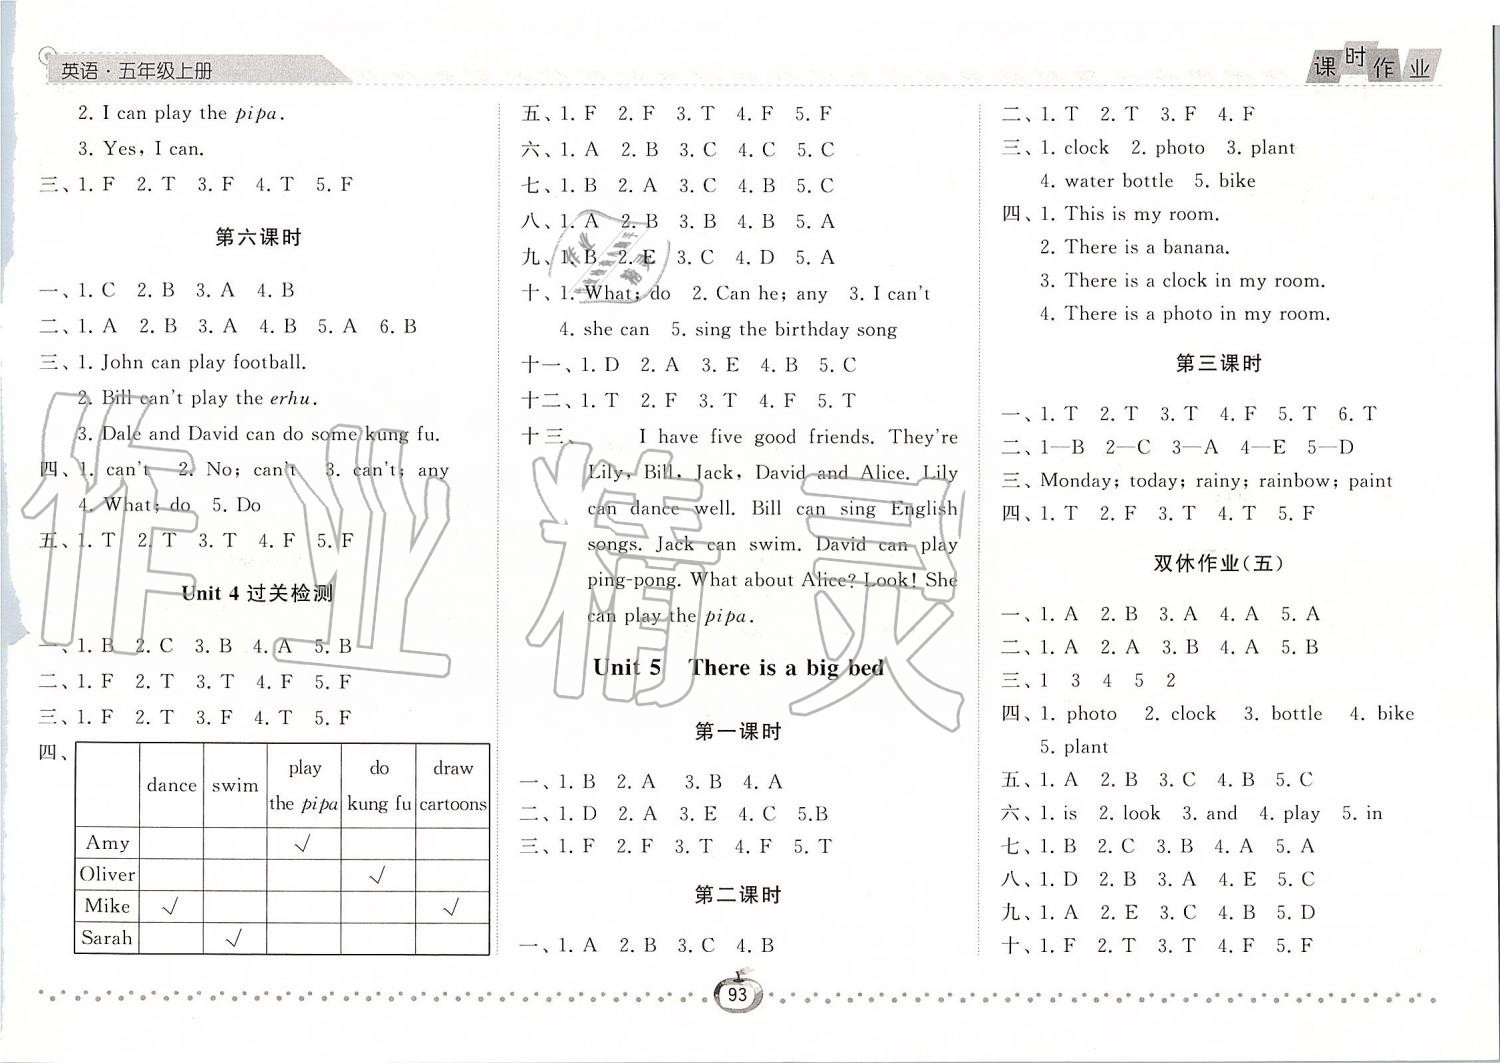 英语·五年级上册
课时作业
2. I can play the pipa.
3. Yes, I can.
三、1. F 2. T 3. F 4. T 5. F
第六课时
一、1. C 2. B 3. A 4. B
二、1. A 2. B 3. A 4. B 5. A 6. B
三、1. John can play football.
2. Bill can't play the erhu.
3. Dale and David can do some kung fu.
四、1. can't 2. No; can't 3. can't; any
4. What; do 5. Do
五、1. T 2. T 3. T 4. F 5. F
Unit 4 过关检测
一、1. B 2. C 3. B 4. A 5. B
二、1. F 2. T 3. T 4. F 5. F
三、1. F 2. T 3. F 4. T 5. F
四、
dance swim play the pipa do kung fu draw cartoons
Amy √
Oliver √
Mike √ √
Sarah √
五、1. F 2. F 3. T 4. F 5. F
六、1. A 2. B 3. C 4. C 5. C
七、1. B 2. A 3. C 4. B 5. C
八、1. A 2. B 3. B 4. B 5. A
九、1. B 2. E 3. C 4. D 5. A
十、1. What; do 2. Can he; any 3. I can't
4. she can 5. sing the birthday song
十一、1. D 2. A 3. E 4. B 5. C
十二、1. T 2. F 3. T 4. F 5. T
十三、 I have five good friends. They're
Lily, Bill, Jack, David and Alice. Lily
can dance well. Bill can sing English
songs. Jack can swim. David can play
ping-pong. What about Alice? Look! She
can play the pipa.
Unit 5 There is a big bed
第一课时
一、1. B 2. A 3. B 4. A
二、1. D 2. A 3. E 4. C 5.B
三、1. F 2. F 3. T 4. F 5. T
第二课时
一、1. A 2. B 3. C 4. B
二、1. T 2. T 3. F 4. F
三、1. clock 2. photo 3. plant
4. water bottle 5. bike
四、1. This is my room.
2. There is a banana.
3. There is a clock in my room.
4. There is a photo in my room.
第三课时
一、1. T 2. T 3. T 4. F 5. T 6. T
二、1—B 2—C 3—A 4—E 5—D
三、Monday; today; rainy; rainbow; paint
四、1. T 2. F 3. T 4. T 5. F
双休作业(五)
一、1. A 2. B 3. A 4. A 5. A
二、1. A 2. A 3. B 4. A 5. B
三、1 3 4 5 2
四、1. photo 2. clock 3. bottle 4. bike
5. plant
五、1. A 2. B 3. C 4. B 5. C
六、1. is 2. look 3. and 4. play 5. in
七、1. B 2. C 3. B 4. A 5. A
八、1. D 2. B 3. A 4. E 5. C
九、1. A 2. E 3. C 4. B 5. D
十、1. F 2. T 3. T 4. F 5. F
93
作业精灵